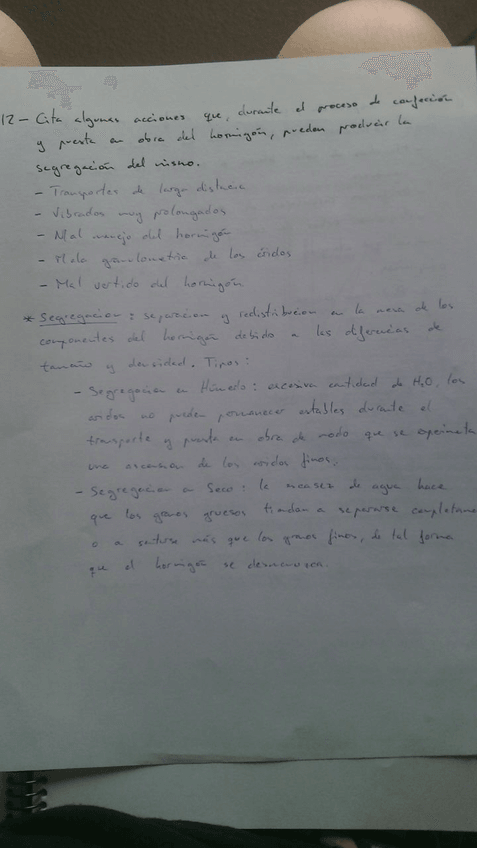 12- Cita algunas acciones que, durante el proceso de confección
y puesta en obra del hormigón, pueden producir la
segregación del mismo.
- Transportes de larga distancia
- Vibrados muy prolongados
- Mal manejo del hormigón
- Mala granulometría de los áridos
- Mal vertido del hormigón
* Segregacion: separacion y redistribucion en la masa de los
componentes del hormigón debido a las diferencias de
tamaño y densidad. Tipos:
- Segregacion en Húmedo: excesiva cantidad de H2O, los
aridos no pueden permanecer estables durante el
transporte y puesta en obra de modo que se experimenta
una ascension de los aridos finos.
- Segregacion en Seco: la escasez de agua hace
que los granos gruesos tiendan a separarse
o a más que los granos finos, de tal forma
que el hormigón se